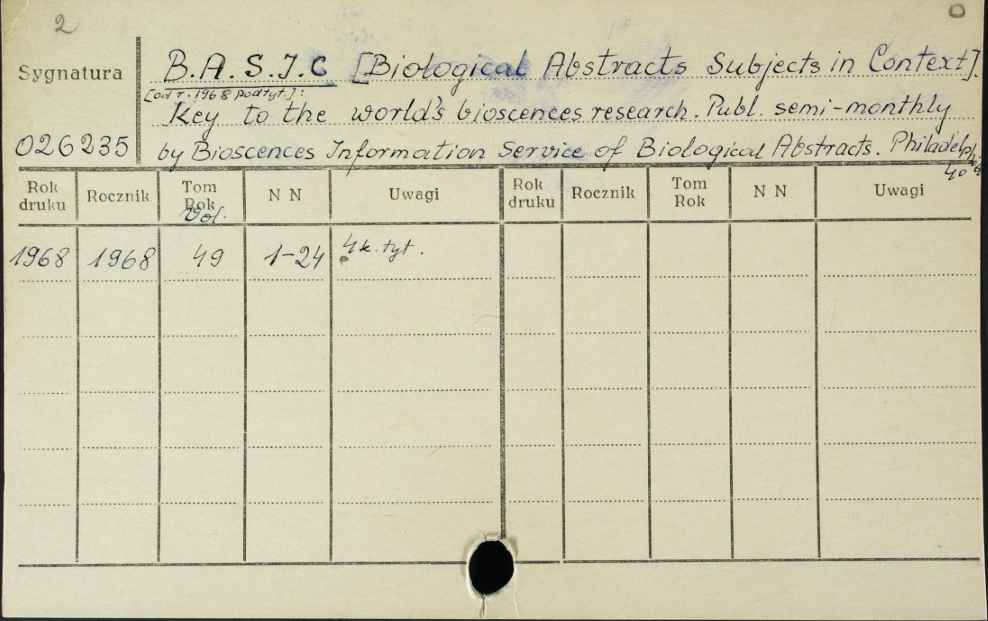 2
Sygnatura B.A.S.I.C [Biological Abstracts Subjects in Context].
[od r. 1968 podtyt.]:
Key to the world's bioscences research. Publ. semi-monthly
026235 by Bioscences Information Service of Biological Abstracts. Philadelphia
4o
Rok druku Rocznik Tom Rok Vol. N N Uwagi Rok druku Rocznik Tom Rok N N Uwagi
1968 1968 49 1-24 4 k. tyt.